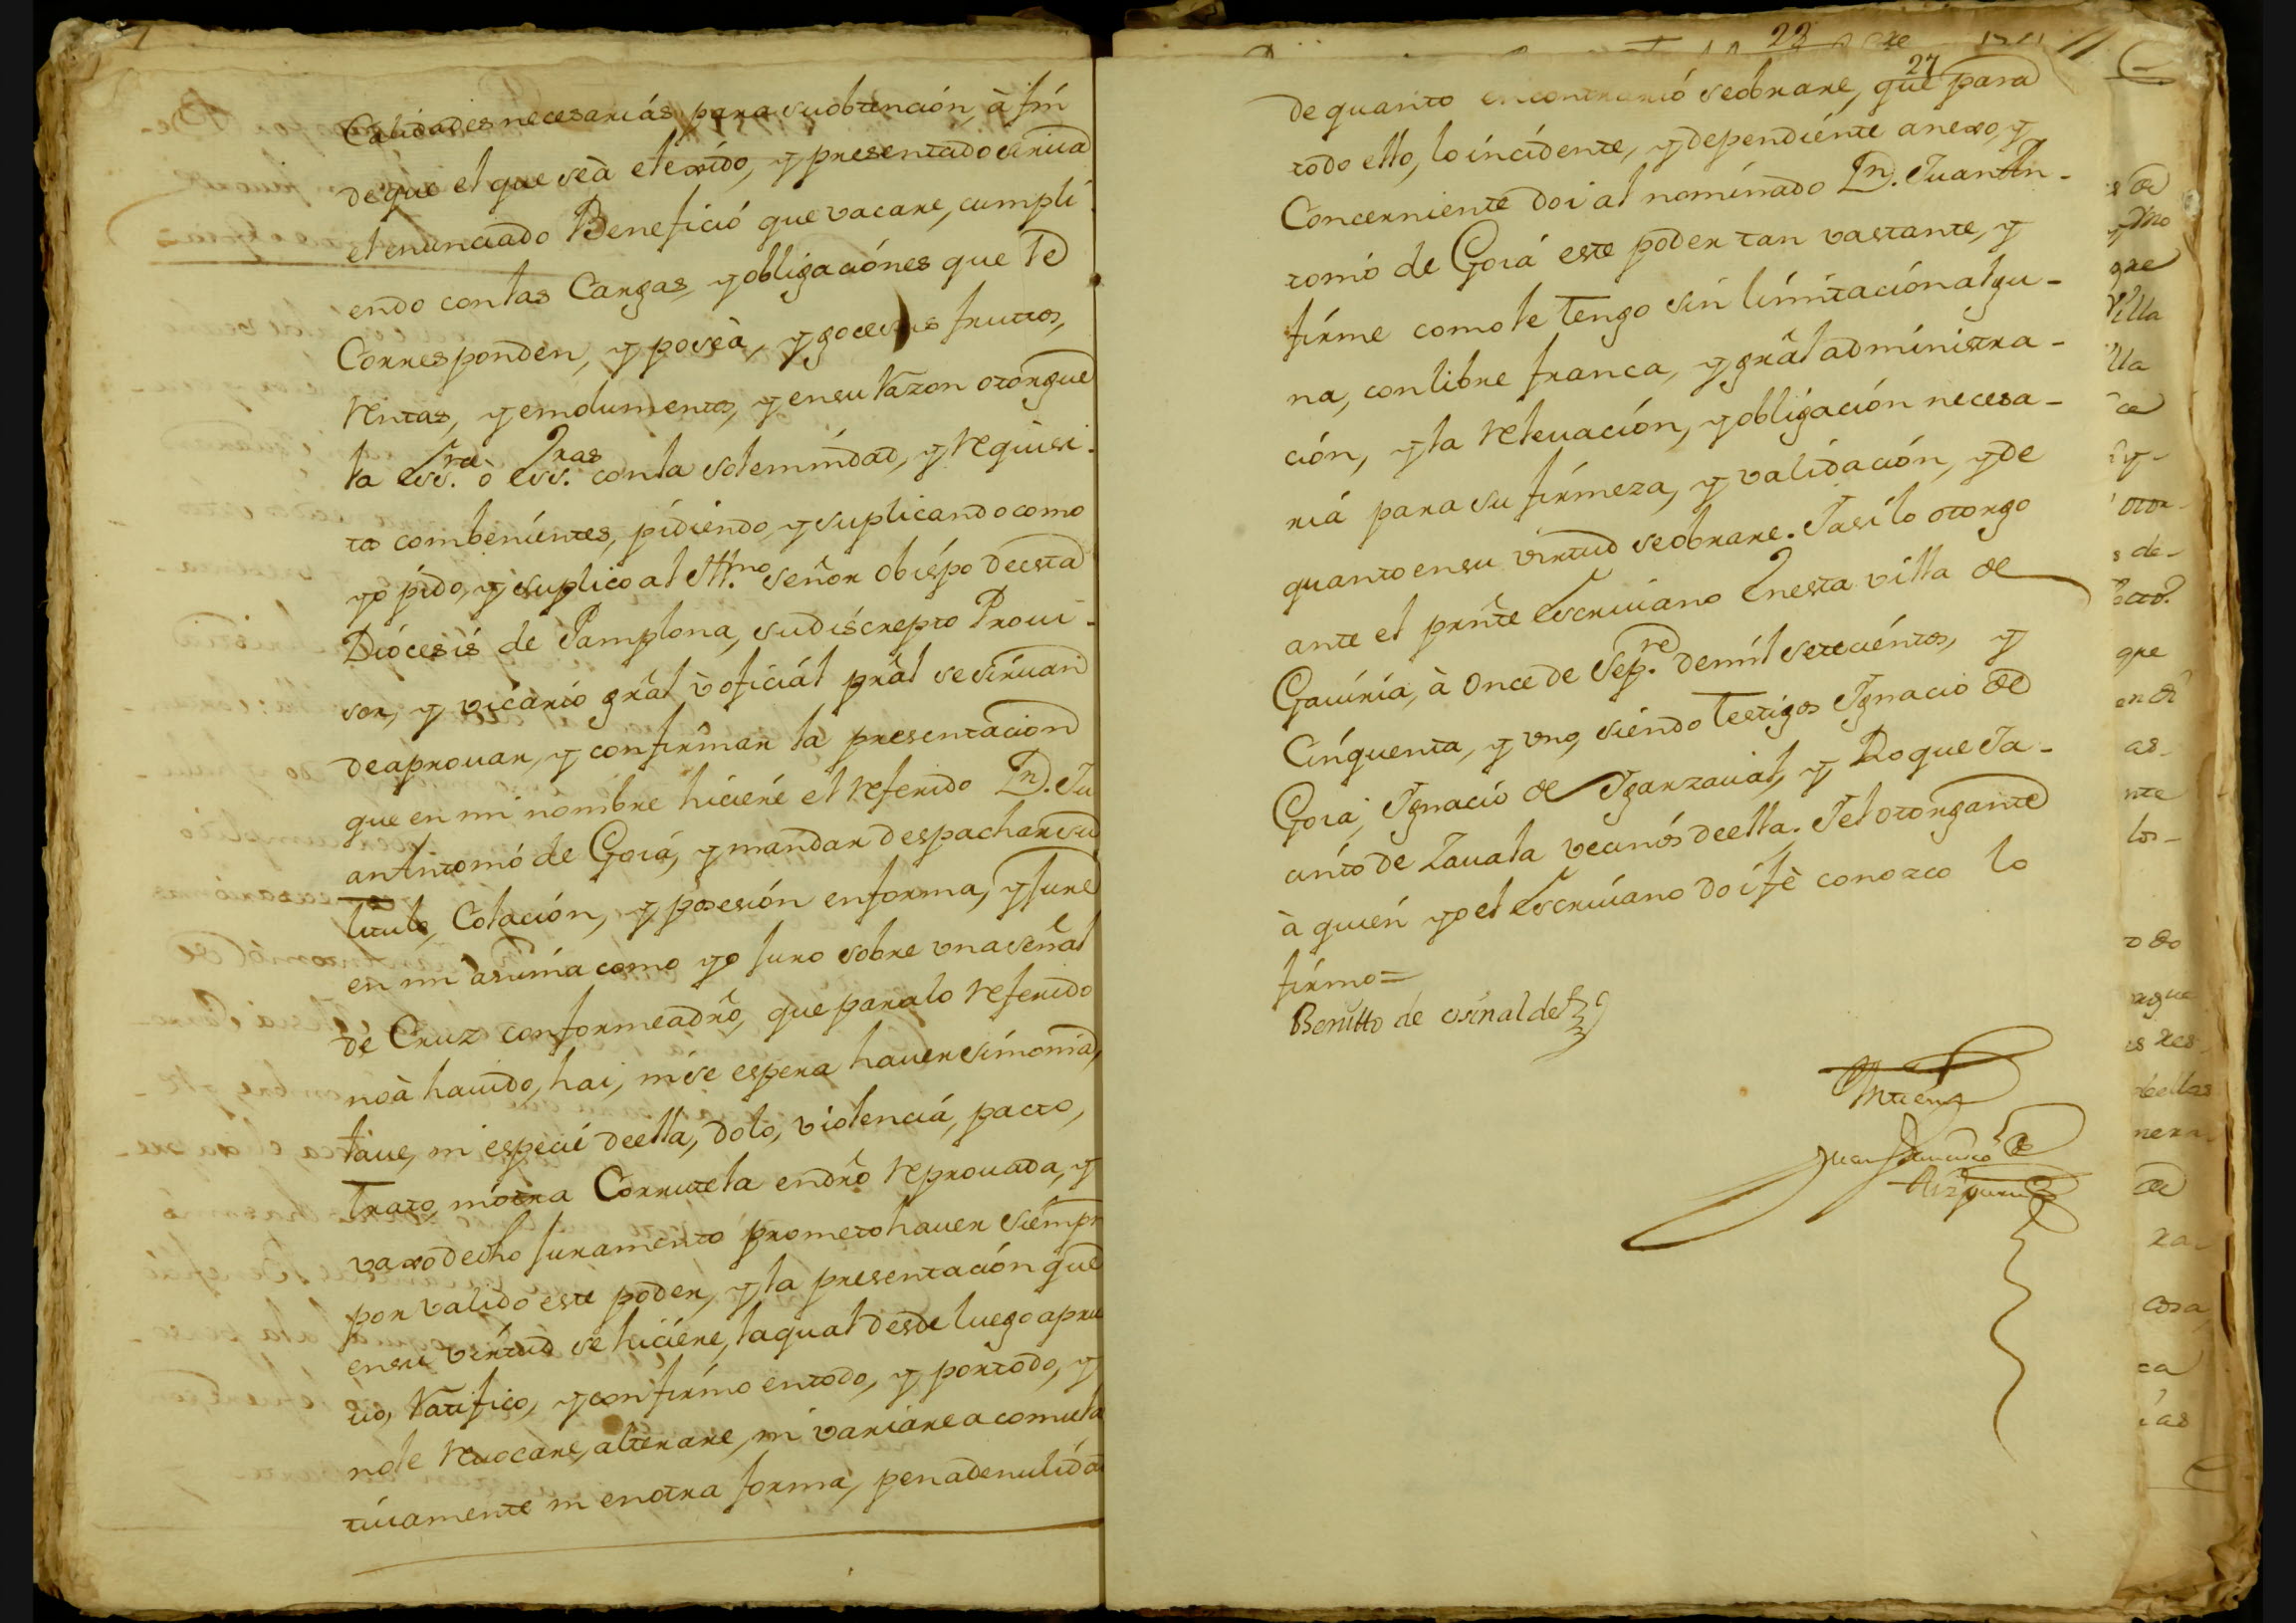 Calidades necesarias para su obtención, à fin
de que el que seà elexido, y presentado sirua
el enunciado Beneficio que vacare, cumpli-
endo con las Cargas, y obligaciónes que le
Corresponden, y poseà, y goce sus frutos,
Rentas, y emolumentos, y en su Razon otorgue
la Essra. ò Essras. con la solemnidad, y Requisi-
tos combenientes, pidiendo, y suplicando como
yo pido, y suplico al Illmo. señor Obispo de esta
Diócesis de Pamplona, su discrepto Proui-
sor, y vicario grāl ù oficiál prāl se siruan
de aprouar, y confirmar la presentacion
que en mi nombre hiciere el Referido Dn. Ju
an Antonio de Goia, y mandar despachar su
titulo, Colación, y posesión en forma, y Jure
en mi anima como yo Juro sobre vna señal
de Cruz conforme a drō, que para lo Referido
no à hauido, hai, ni se espera hauer simonia,
laue, ni especie de ella, dolo, violencia, pacto,
trato, ni otra Corrutela en drō Reprouada, y
vaxo de dho Juramento prometo hauer siempr
por valido este poder, y la presentación que
en su virtud se hiciere, la qual desde luego aprue
uo, Ratifico, y confirmo en todo, y por todo, y
no le Reuocare, alterare, ni variare acomula
tiuamente ni en otra forma, pena de nulida
28
27
de quanto en contrario se obrare, que para
todo ello, lo incidente, y dependiente anexo, y
Concerniente doi al nominado Dn. Juan An-
tonio de Goia este poder tan vastante, y
firme como le tengo sin limitación algu-
na, con libre franca, y grāl administra-
ción, y la Releuación, y obligación necesa-
ria para su firmeza, y validación, y de
quanto en su virtud se obrare. I asi lo otorgo
ante el prnte Escriuano En esta villa de
Gauiria, à once de Sepre. de mil setecientos, y
Cinquenta, y vno, siendo testigos Ignacio de
Goia, Ignacio de Igarzaual, y Roque Ja-
cinto de Zauala vecinos de ella. I el otorgante
à quien yo el Escriuano doi fè conozco lo
firmo=
Benitto de osinalde
Ante mi
Juan Francisco de
Aizpuru